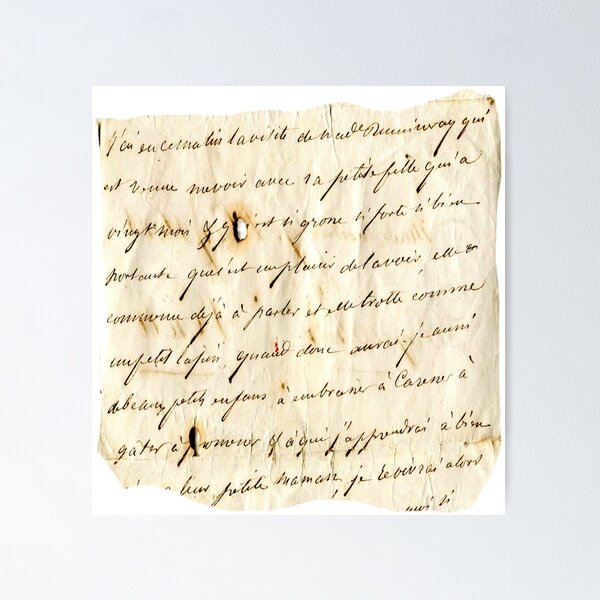 j'ai eu ce matin la visite de Made qui
est venue me voir avec sa petite fille qui a
vingt mois & est si grosse si forte si bien
portante que c'est un plaisir de la voir, elle
commence déjà à parler et elle trotte comme
un petit lapin, quand donc aurai-je aussi
de beaux petits enfans à embrasser à Caresser à
gâter à promener & à qui j'apprendrai à bien
leur petite maman, je revivrai alors
si